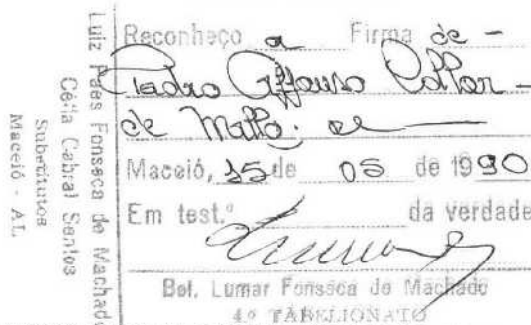 Luiz Paes Fonseca de Machado
Célia Cabral Santos
Substitutos
Maceió - AL
Reconheço a Firma de -
Pedro Affonso Collor -
de Mello.
Maceió, 15 de 05 de 1990
Em test.º da verdade
Bel. Lumar Fonseca de Machado
4.º TABELIONATO